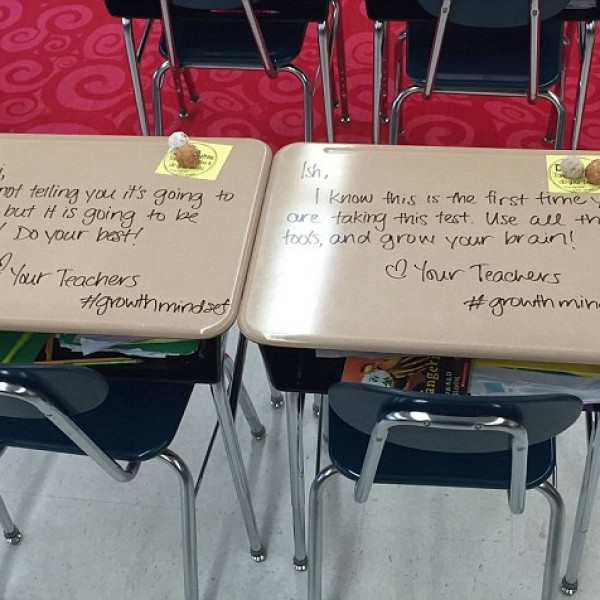 not telling you it's going to
but it is going to be
Do your best!
♡ Your Teachers
#growthmindset
Ish,
I know this is the first time
are taking this test. Use all
tools, and grow your brain!
♡ Your Teachers
#growthmin